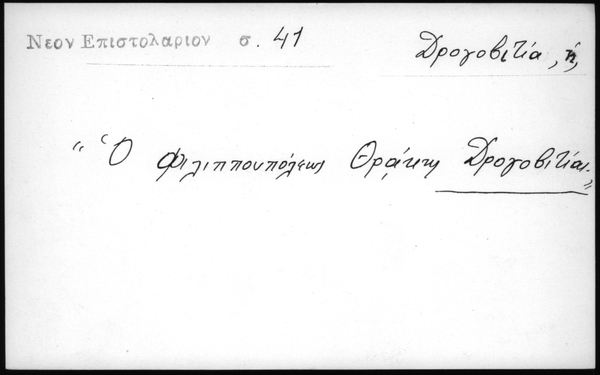 Νεον Επιστολαριον σ. 41 Δρογοβιτία, ἡ,
“ Ὁ Φιλιππουπόλεως Θρᾴκης Δρογοβιτίας.”